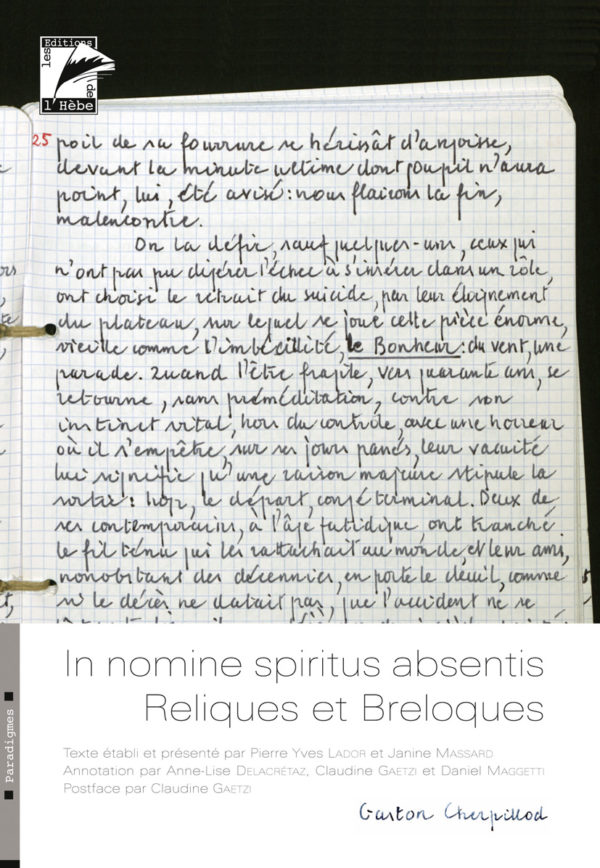 les
Editions
de
l'Hèbe
25 poil de sa fourrure se hérissât d'angoisse,
devant la minute ultime dont goupil n'aura
point, lui, été avisé : nous flairons la fin,
malencontre.
On la défie, sauf quelques-uns, ceux qui
n'ont pas pu digérer l'échec à s'insérer dans un rôle,
ont choisi le retrait du suicide, par leur éloignement
du plateau, sur lequel se joue cette pièce énorme,
vieille comme l'imbécillité, le Bonheur : du vent, une
parade. Quand l'être fragile, vers quarante ans, se
retourne, sans préméditation, contre son
instinct vital, hors du contrôle, avec une horreur
où il s'empêtre, sur ses jours passés, leur vacuité
lui signifie qu'une raison majeure stipule la
sortie : hop, le départ, congé terminal. Deux de
ses contemporains, à l'âge fatidique, ont tranché
le fil ténu qui les rattachait au monde, et leur ami,
nonobstant des décennies, en porte le deuil, comme
si le décès ne datait pas, que l'accident ne se
In nomine spiritus absentis
Reliques et Breloques
Paradigmes
Texte établi et présenté par Pierre Yves LADOR et Janine MASSARD
Annotation par Anne-Lise DELACRÉTAZ, Claudine GAETZI et Daniel MAGGETTI
Postface par Claudine GAETZI
Gaston Cherpillod